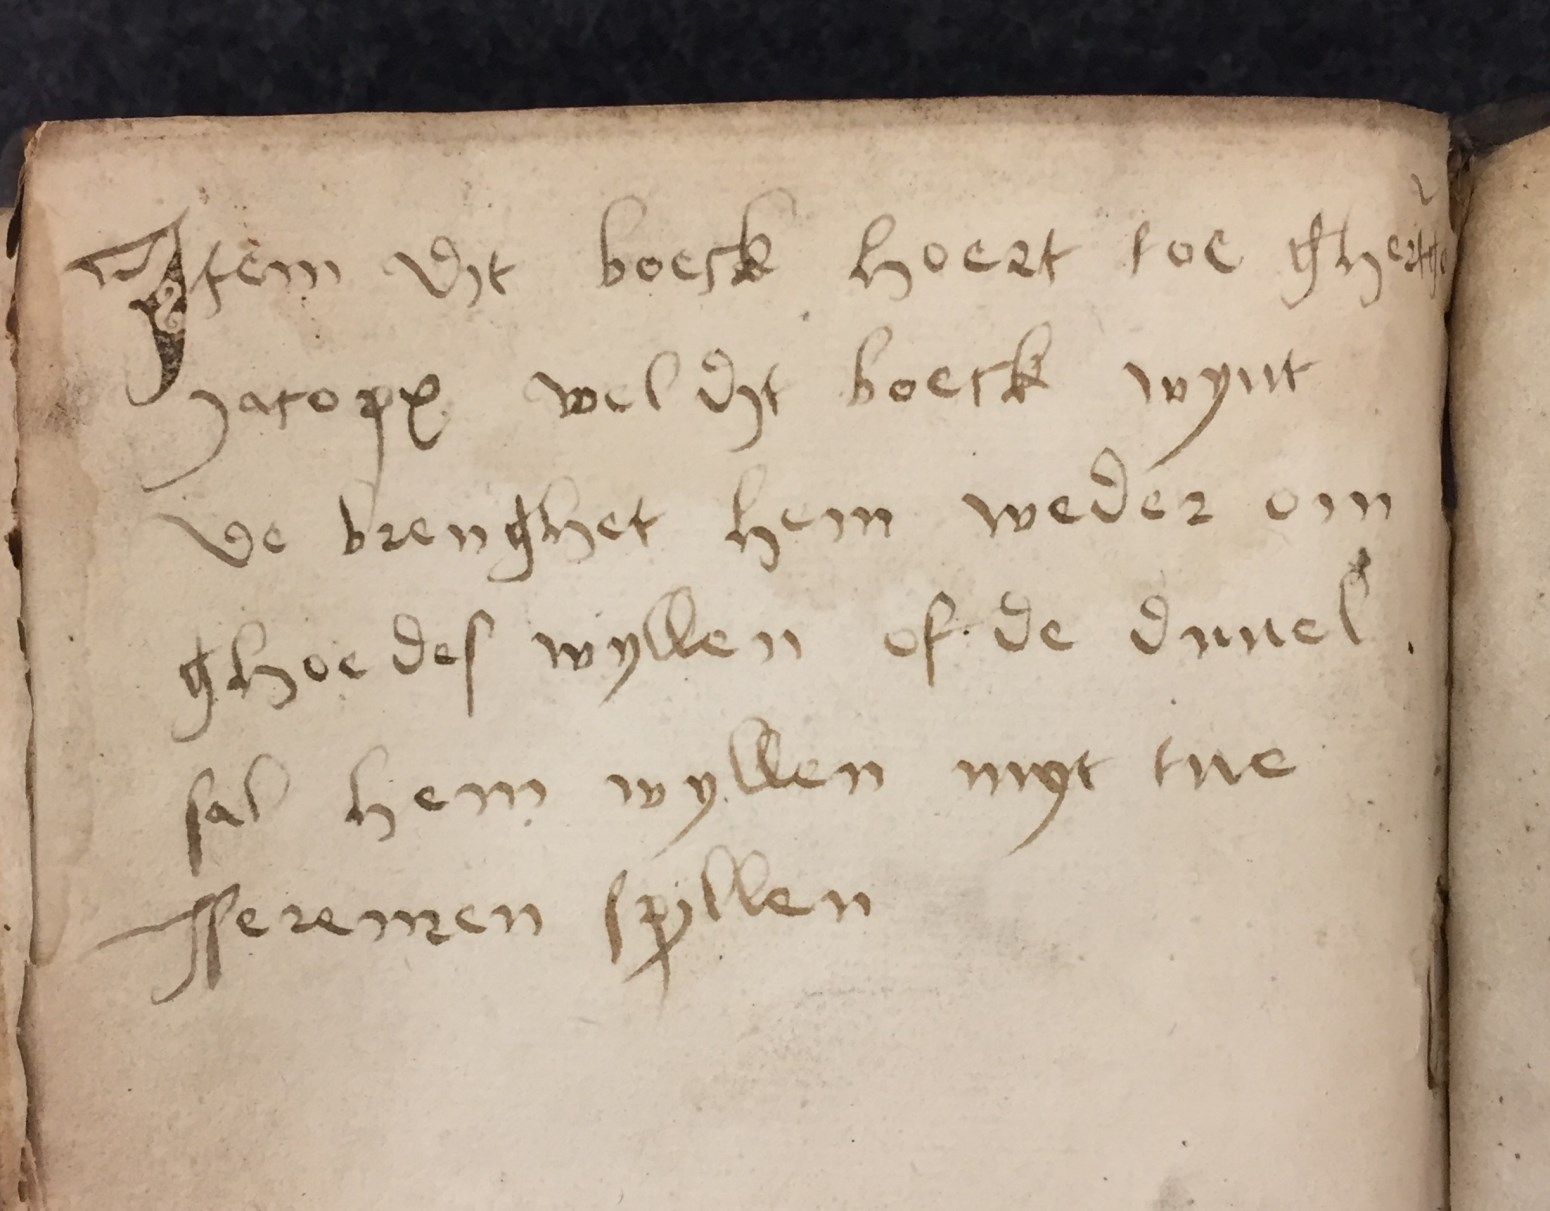 Item dit boeck hoert toe ghert
Jacopx wel dit boeck wynt
De brenghet hem weder om
ghoedes wyllen of de duuel.
sal hem wyllen myt tue
Jseremen spyllen